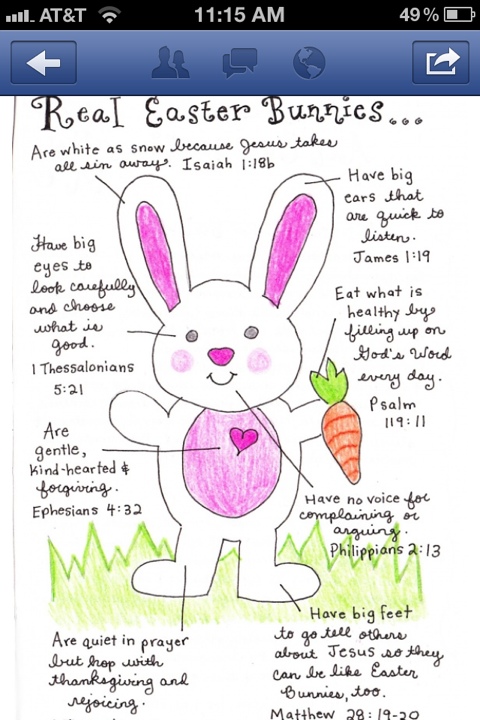 AT&T 11:15 AM 49%
Real Easter Bunnies...
Are white as snow because Jesus takes
all sin away. Isaiah 1:18b
Have big
ears that
are quick to
listen.
James 1:19
Have big
eyes to
look carefully
and choose
what is
good.
1 Thessalonians
5:21
Eat what is
healthy by
filling up on
God's Word
every day.
Psalm
119:11
Are
gentle,
kind-hearted &
forgiving.
Ephesians 4:32
Have no voice for
complaining or
arguing.
Philippians 2:13
Are quiet in prayer
but hop with
thanksgiving and
rejoicing.
Have big feet
to go tell others
about Jesus so they
can be like Easter
Bunnies, too.
Matthew 28:19-20